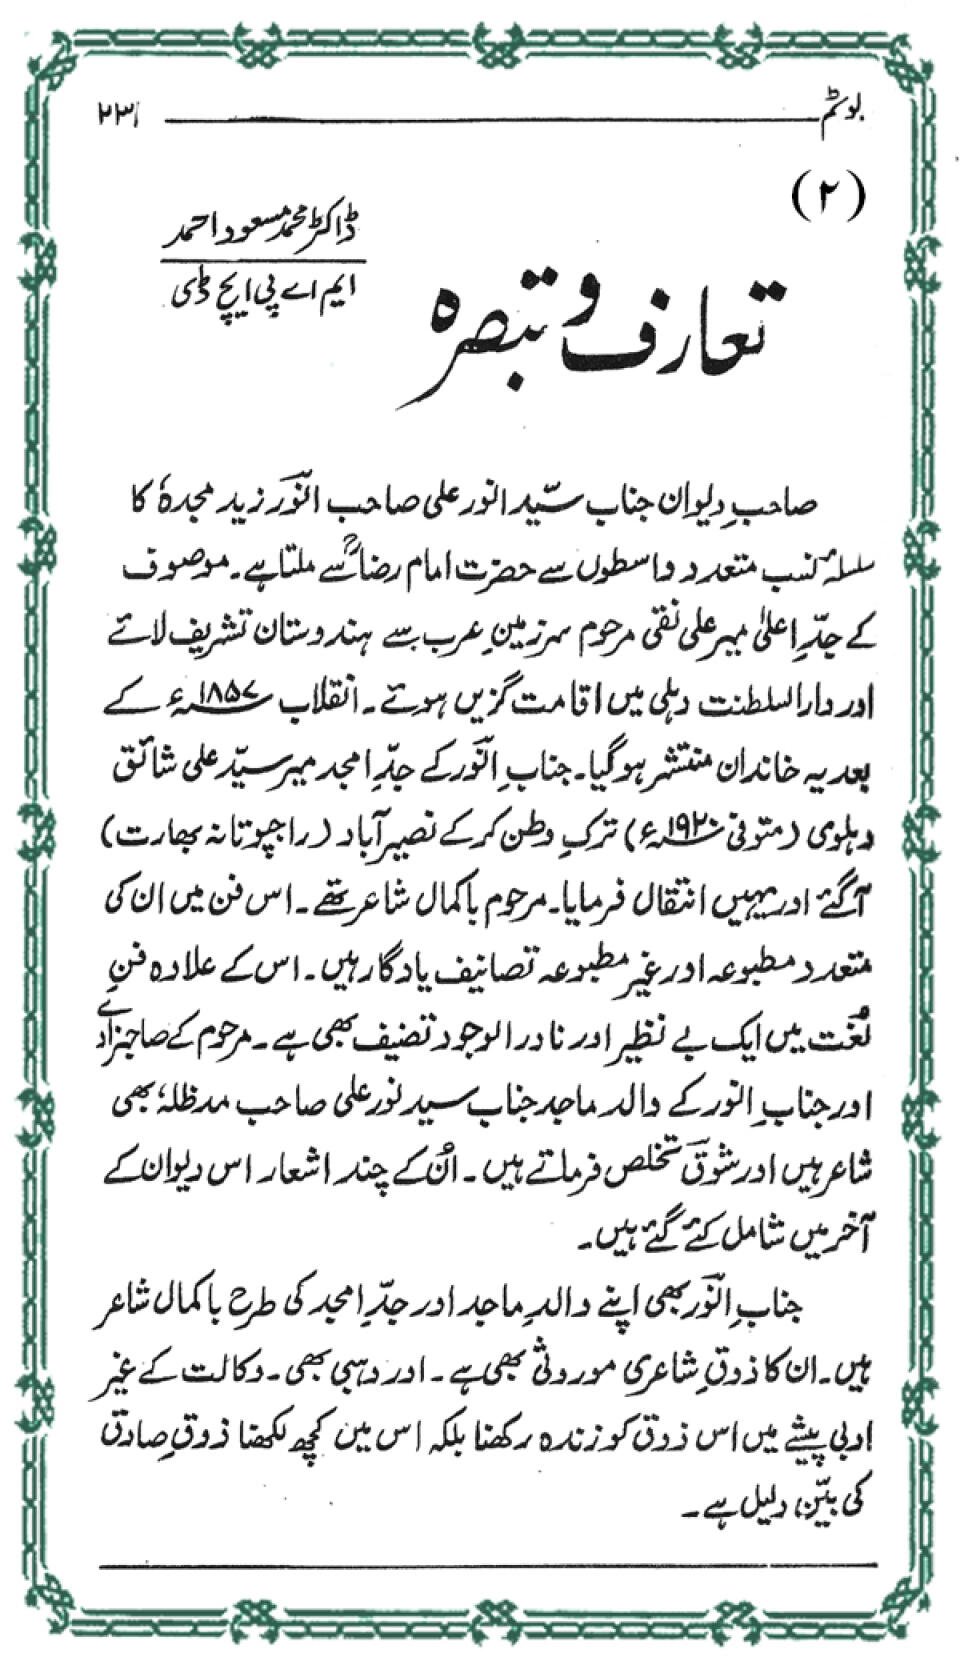 بوٹم ۲۳۱
(۲)
ڈاکٹر محمد مسعود احمد
ایم اے پی ایچ ڈی
تعارف و تبصرہ
صاحبِ دیوان جناب سیّد انور علی صاحب انورؔ زید مجدہٗ کا
سلسلۂ نسب متعدد واسطوں سے حضرت امام رضاؓ سے ملتا ہے۔ موصوف
کے جدِّ اعلیٰ میر علی نقی مرحوم سرزمینِ عرب سے ہندوستان تشریف لائے
اور دارالسلطنت دہلی میں اقامت گزیں ہوئے۔ انقلاب ۱۸۵۷ء کے
بعد یہ خاندان منتشر ہو گیا۔ جنابِ انورؔ کے جدِّ امجد میر سیّد علی شائقؔ
دہلوی (متوفی ۱۹۲۰ء) ترکِ وطن کر کے نصیر آباد (راجپوتانہ بھارت)
آ گئے اور یہیں انتقال فرمایا۔ مرحوم باکمال شاعر تھے۔ اس فن میں ان کی
متعدد مطبوعہ اور غیر مطبوعہ تصانیف یادگار ہیں۔ اس کے علاوہ فنِ
لُغت میں ایک بے نظیر اور نادر الوجود تصنیف بھی ہے۔ مرحوم کے صاحبزادے
اور جنابِ انور کے والد ماجد جناب سید نور علی صاحب مدظلہٗ بھی
شاعر ہیں اور شوقؔ تخلص فرماتے ہیں۔ اُن کے چند اشعار اس دیوان کے
آخر میں شامل کئے گئے ہیں۔
جنابِ انورؔ بھی اپنے والدِ ماجد اور جدِّ امجد کی طرح باکمال شاعر
ہیں۔ ان کا ذوقِ شاعری موروثی بھی ہے۔ اور وہبی بھی۔ وکالت کے غیر
ادبی پیشے میں اس ذوق کو زندہ رکھنا بلکہ اس میں کچھ لکھنا ذوقِ صادق
کی بیّن دلیل ہے۔